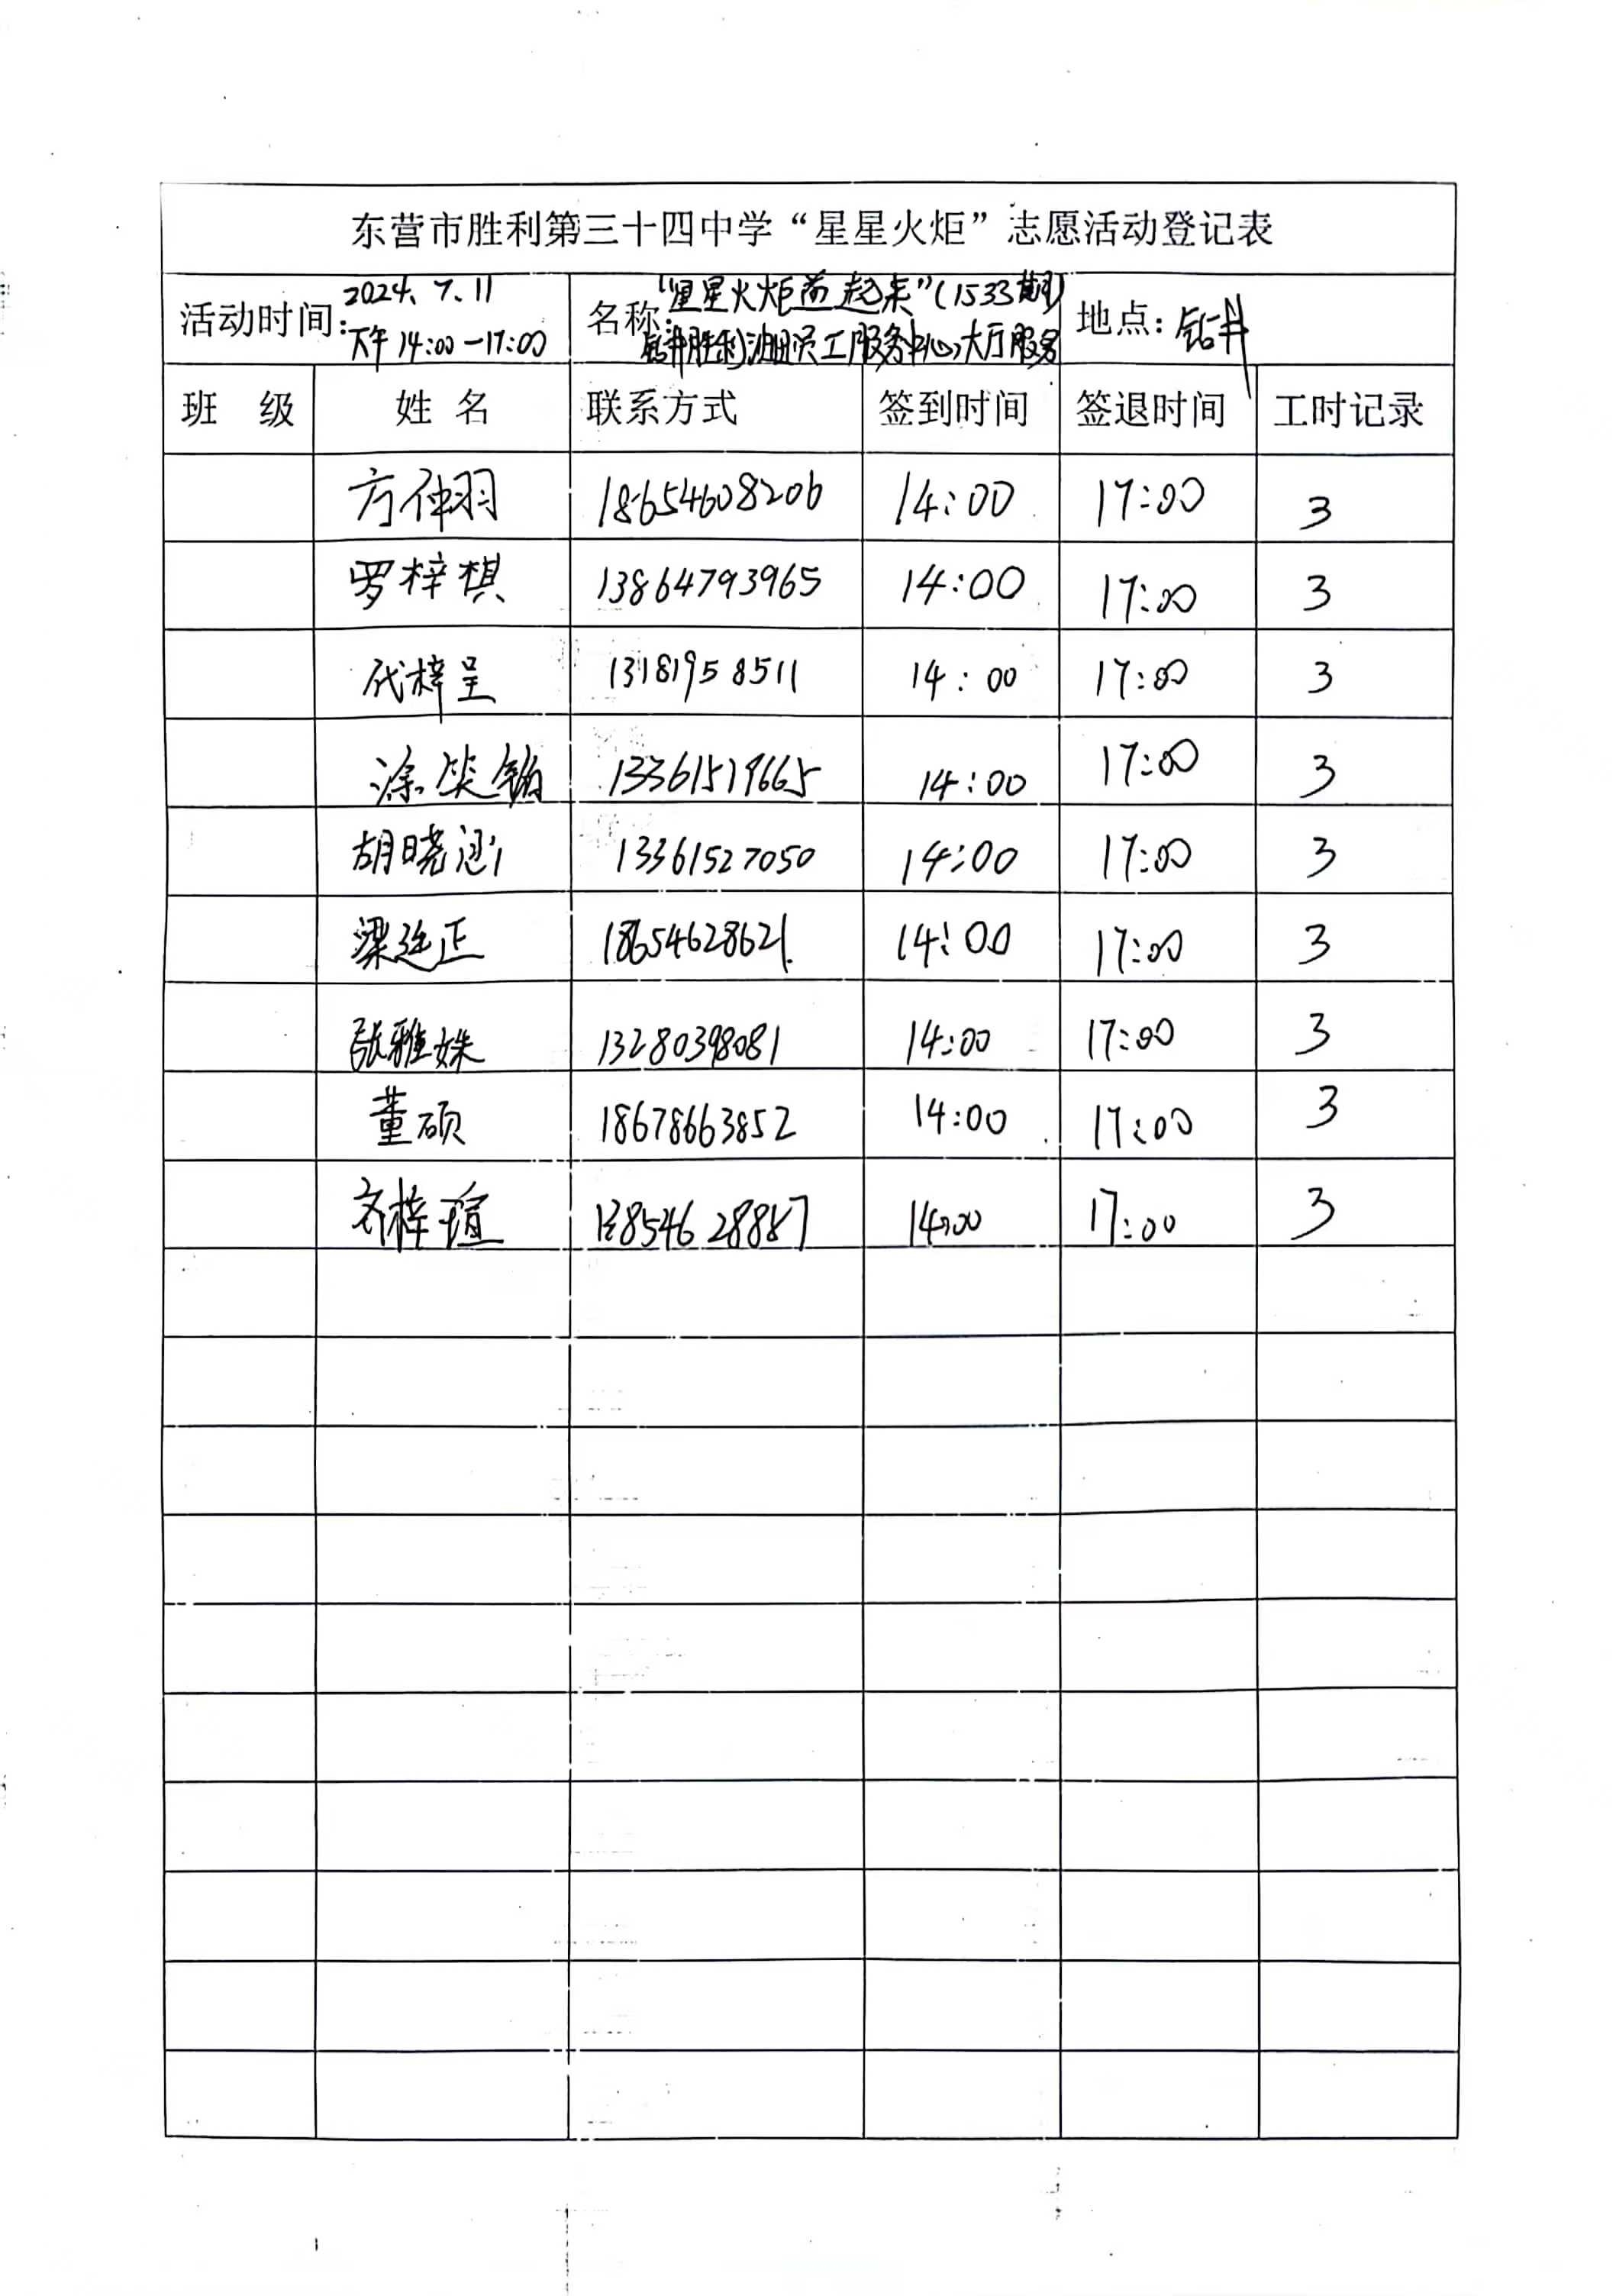 东营市胜利第三十四中学“星星火炬”志愿活动登记表
活动时间: 2024.7.11 下午14:00-17:00
名称: “星星火炬前起来”(1533期) 钻井胜利油田员工服务中心大厅服务
地点: 钻井
班 级 姓 名 联系方式 签到时间 签退时间 工时记录
方仲羽 18654608206 14:00 17:00 3
罗梓棋 13864793965 14:00 17:00 3
代梓呈 13181958511 14:00 17:00 3
涂笑 13361519665 14:00 17:00 3
胡晓涵 13361527050 14:00 17:00 3
梁廷正 18654628621 14:00 17:00 3
张雅姝 13280398081 14:00 17:00 3
董硕 18678663852 14:00 17:00 3
齐梓瑄 14:00 17:00 3